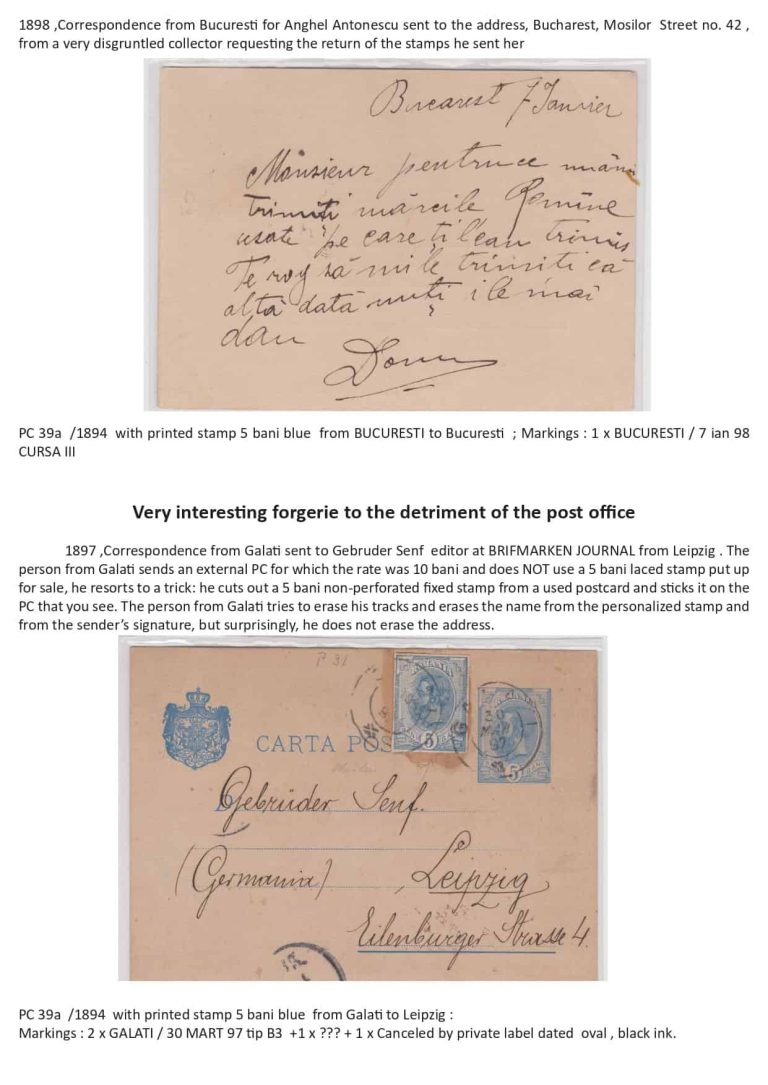 1898 ,Correspondence from Bucuresti for Anghel Antonescu sent to the address, Bucharest, Mosilor Street no. 42 ,
from a very disgruntled collector requesting the return of the stamps he sent her
Bucarest 7 Janvier
Monsieur pentruce
trimiți mărcile Romîne
usate pe care ți leau trimis
Te rog să mi le trimiti că
altă dată nu ți le mai
dau
PC 39a /1894 with printed stamp 5 bani blue from BUCURESTI to Bucuresti ; Markings : 1 x BUCURESTI / 7 ian 98
CURSA III
Very interesting forgerie to the detriment of the post office
1897 ,Correspondence from Galati sent to Gebruder Senf editor at BRIFMARKEN JOURNAL from Leipzig . The
person from Galati sends an external PC for which the rate was 10 bani and does NOT use a 5 bani laced stamp put up
for sale, he resorts to a trick: he cuts out a 5 bani non-perforated fixed stamp from a used postcard and sticks it on the
PC that you see. The person from Galati tries to erase his tracks and erases the name from the personalized stamp and
from the sender’s signature, but surprisingly, he does not erase the address.
CARTA POS
5
30
97
5
Gebrüder Senf.
(Germania) Leipzig
Eilenburger Strasse 4.
PC 39a /1894 with printed stamp 5 bani blue from Galati to Leipzig :
Markings : 2 x GALATI / 30 MART 97 tip B3 +1 x ??? + 1 x Canceled by private label dated oval , black ink.